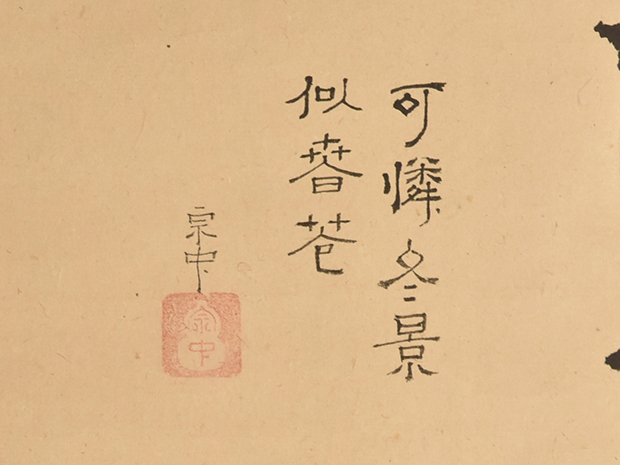 可憐冬景
似春花
宗中
宗中